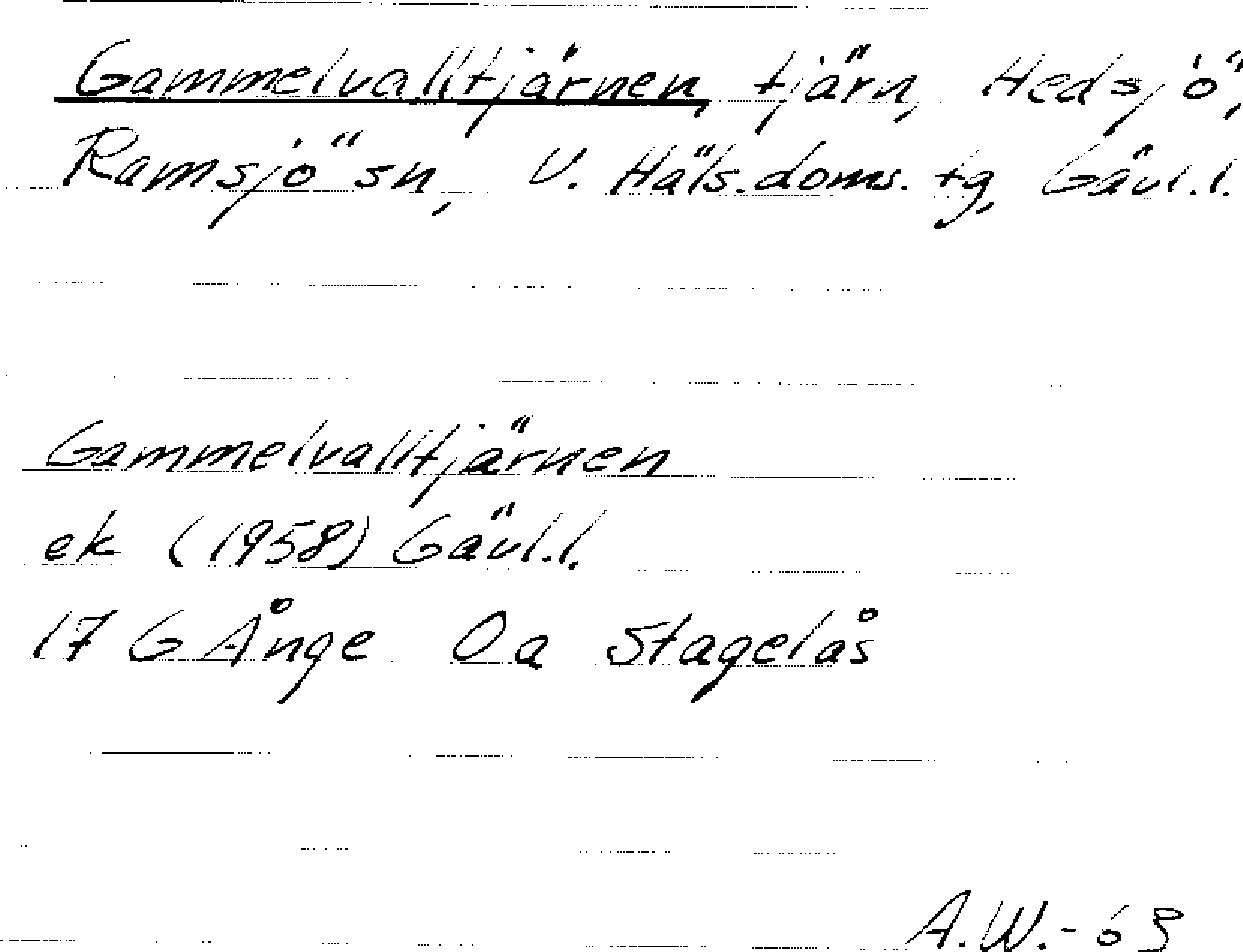 Gammelvalltjärnen, tjärn, Hedsjö,
Ramsjö sn, V. Häls. doms. tg, Gävl.l.
Gammelvalltjärnen
ek (1958) Gävl.l.
17 G Ånge Oa Stagelås
A.W.-63